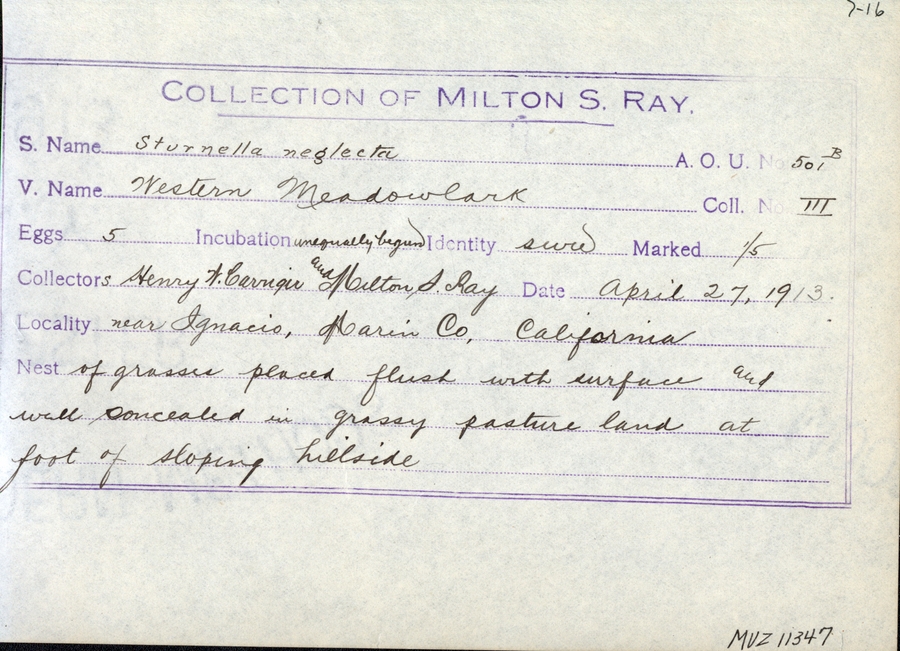 7-16
COLLECTION OF MILTON S. RAY.
S. Name Sturnella neglecta A. O. U. No 501B
V. Name Western Meadowlark Coll. No III
Eggs 5 Incubation unequally begun Identity sure Marked 1/5
Collectors Henry W. Carriger and Milton S. Ray Date April 27, 1913.
Locality near Ignacio, Marin Co, California
Nest of grasses placed flush with surface and
well concealed in grassy pasture land at
foot of sloping hillside
MVZ 11347